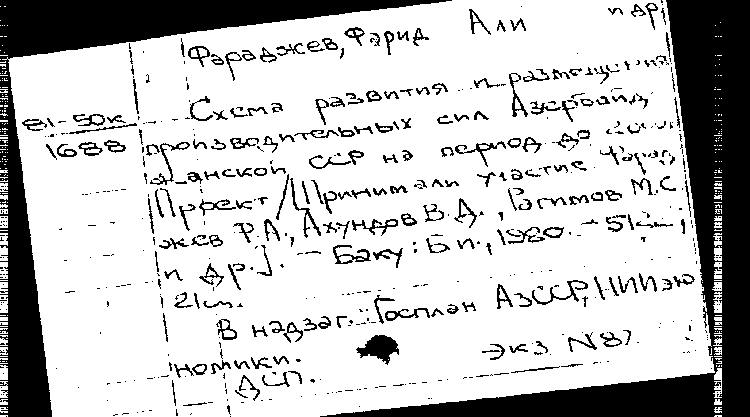 Фараджев, Фарид Али и др.
81-50к
1688
Схема развития и размещения
производительных сил Азербайд
жанской ССР на период до
Проект / [Принимали участие Фарад
жев Ф.А., Ахундов В.Д., Рагимов М.С
и др.]. - Баку: Б.и., 1980. -
21см.
В надзаг.: Госплан АзССР, НИИ эко
номики.
ДСП.
Экз N 87